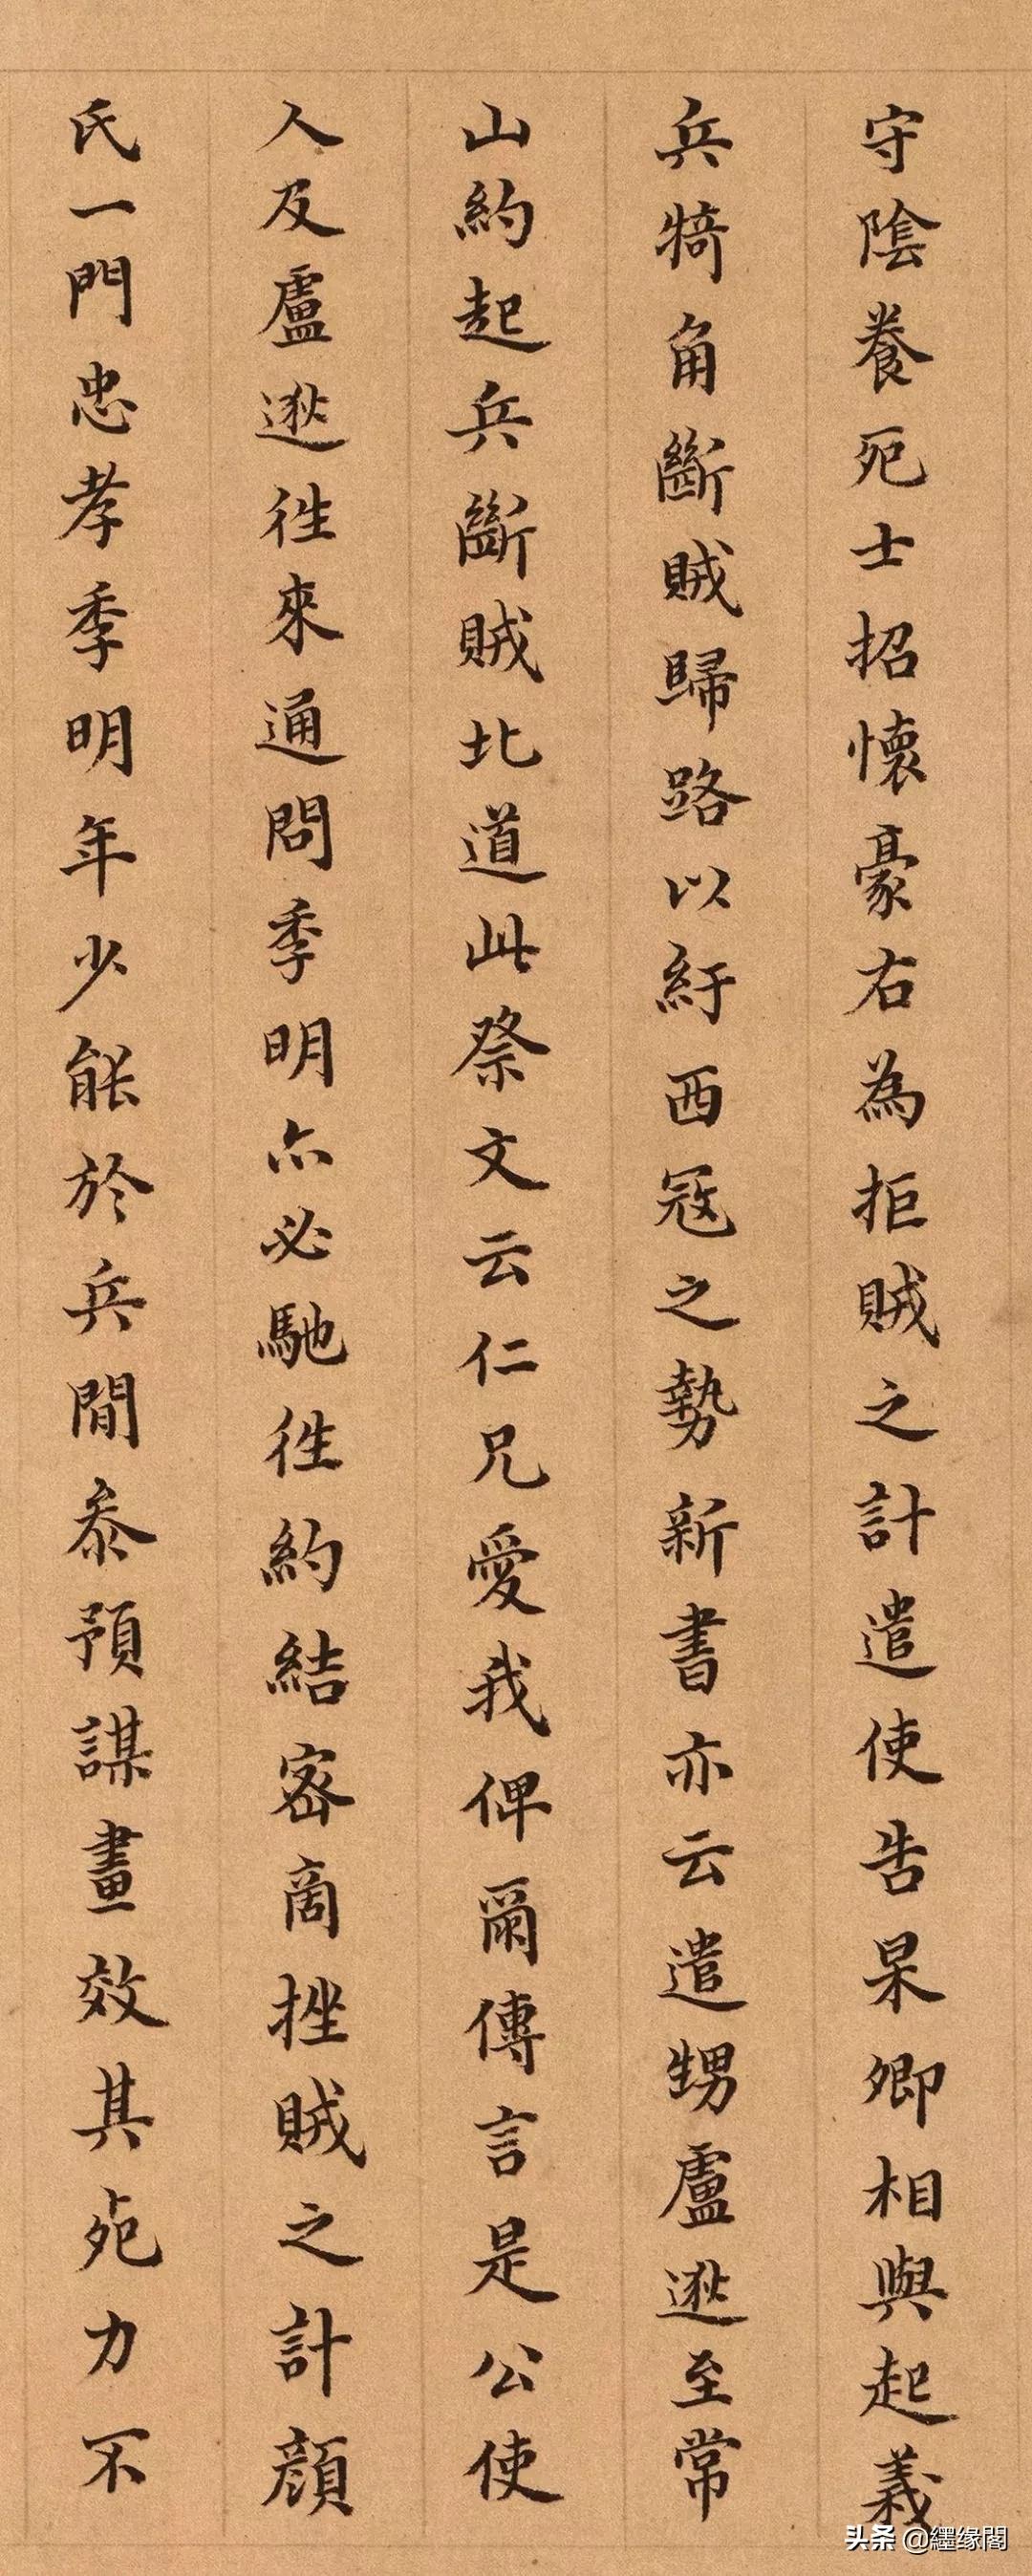 守陰養死士招懷豪右為拒賊之計遣使告杲卿相與起義
兵犄角斷賊歸路以紓西寇之勢新書亦云遣甥盧逖至常
山約起兵斷賊北道此祭文云仁兄愛我俾爾傳言是公使
人及盧逖往來通問季明亦必馳往約結密商挫賊之計顏
氏一門忠孝季明年少能於兵間參預謀畫效其死力不
头条 @纆缘閣